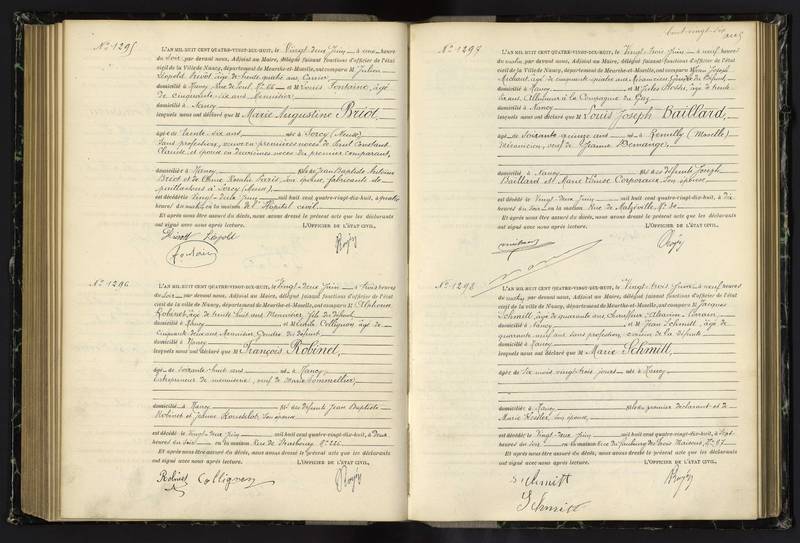 N° 1295
L'AN MIL HUIT CENT QUATRE-VINGT-DIX-HUIT, le Vingt-deux Juin à onze heures
du Soir, par devant nous, Adjoint au Maire, délégué faisant fonctions d'officier de l'état
civil de la Ville de Nancy, département de Meurthe-et-Moselle, ont comparu M Julien
Léopold Prevot, âgé de trente quatre ans,
domicilié à Nancy et M Louis Fontaine, âgé
de cinquante-six ans
domicilié à Nancy
lesquels nous ont déclaré que M Marie Augustine Briot,
âgée de trente-six ans née à Sorcy (Meuse)
Sans profession, veuve en premières noces de Paul Constant
Claude et épouse en deuxièmes noces du premier comparant,
domiciliée à Nancy fille de Jean Baptiste Antoine
Briot et de Anne Rosalie Paris, son épouse, fabricants de
à Sorcy (Meuse)
est décédée le Vingt-deux Juin mil huit cent quatre-vingt-dix-huit, à
heures du matin en la maison de l'Hôpital civil
Et après nous être assuré du décès, nous avons dressé le présent acte que les déclarants
ont signé avec nous après lecture. L'OFFICIER DE L'ÉTAT CIVIL,
Prevot Léopold
N° 1296
L'AN MIL HUIT CENT QUATRE-VINGT-DIX-HUIT, le Vingt-deux Juin à trois heures
du Soir, par devant nous, Adjoint au Maire, délégué faisant fonctions d'officier de l'état
civil de la ville de Nancy, département de Meurthe-et-Moselle, ont comparu M Alphonse
Robinet, âgé de trente huit ans Menuisier, fils du défunt
domicilié à Nancy et M Emile Collignon, âgé de
cinquante deux ans Menuisier, Gendre du défunt
domicilié à Nancy
lesquels nous ont déclaré que M François Robinet,
âgé de soixante-huit ans né à Nancy
Entrepreneur de menuiserie, veuf de Marie Sommellier,
domicilié à Nancy fils des défunts Jean Baptiste
Robinet et Jeanne Rousselot, son épouse
est décédé le Vingt-deux Juin mil huit cent quatre-vingt-dix-huit, à deux
heures du Soir en sa maison Rue de Strasbourg N° 226
Et après nous être assuré du décès, nous avons dressé le présent acte que les déclarants
ont signé avec nous après lecture. L'OFFICIER DE L'ÉTAT CIVIL,
Robinet Collignon
N° 1297
L'AN MIL HUIT CENT QUATRE-VINGT-DIX-HUIT, le Vingt-trois Juin à neuf heures
du matin, par devant nous, Adjoint au Maire, délégué faisant fonctions d'officier de l'état
civil de la Ville de Nancy, département de Meurthe-et-Moselle, ont comparu M Joseph
Michaut, âgé de cinquante-quatre ans Mécanicien Gendre du défunt,
domicilié à Nancy et M Jules âgé de trente
six ans, Allumeur à la Compagnie du Gaz
domicilié à Nancy
lesquels nous ont déclaré que M Louis Joseph Baillard,
âgé de Soixante quinze ans né à Remilly (Moselle)
Mécanicien, veuf de Jeanne Demange,
domicilié à Nancy fils des défunts Joseph
Baillard et Marie Louise Corporaux, Son épouse,
est décédé le Vingt-deux Juin mil huit cent quatre-vingt-dix-huit, à dix
heures du Soir en la maison Rue de Malzéville, N° 30
Et après nous être assuré du décès, nous avons dressé le présent acte que les déclarants
ont signé avec nous après lecture. L'OFFICIER DE L'ÉTAT CIVIL,
N° 1298
L'AN MIL HUIT CENT QUATRE-VINGT-DIX-HUIT, le Vingt-trois Juin à neuf heures
du matin, par devant nous, Adjoint au Maire, délégué faisant fonctions d'officier de l'état
civil de la ville de Nancy, département de Meurthe-et-Moselle, ont comparu M Jacques
Schmitt, âgé de quarante ans chauffeur, Alsacien-Lorrain
domicilié à Nancy et M Jean Schmitt, âgé de
quarante neuf ans Sans profession, cousin de la défunte
domicilié à Nancy
lesquels nous ont déclaré que M Marie Schmitt,
âgée de Six mois vingt-trois jours née à Nancy
domiciliée à Nancy fille du premier déclarant et de
Marie Kesler, Son épouse,
est décédée le Vingt-deux Juin mil huit cent quatre-vingt-dix-huit, à Sept
heures du Soir en la maison Rue du faubourg des trois Maisons, N° 67
Et après nous être assuré du décès, nous avons dressé le présent acte que les déclarants
ont signé avec nous après lecture. L'OFFICIER DE L'ÉTAT CIVIL,
Schmitt
Schmitt